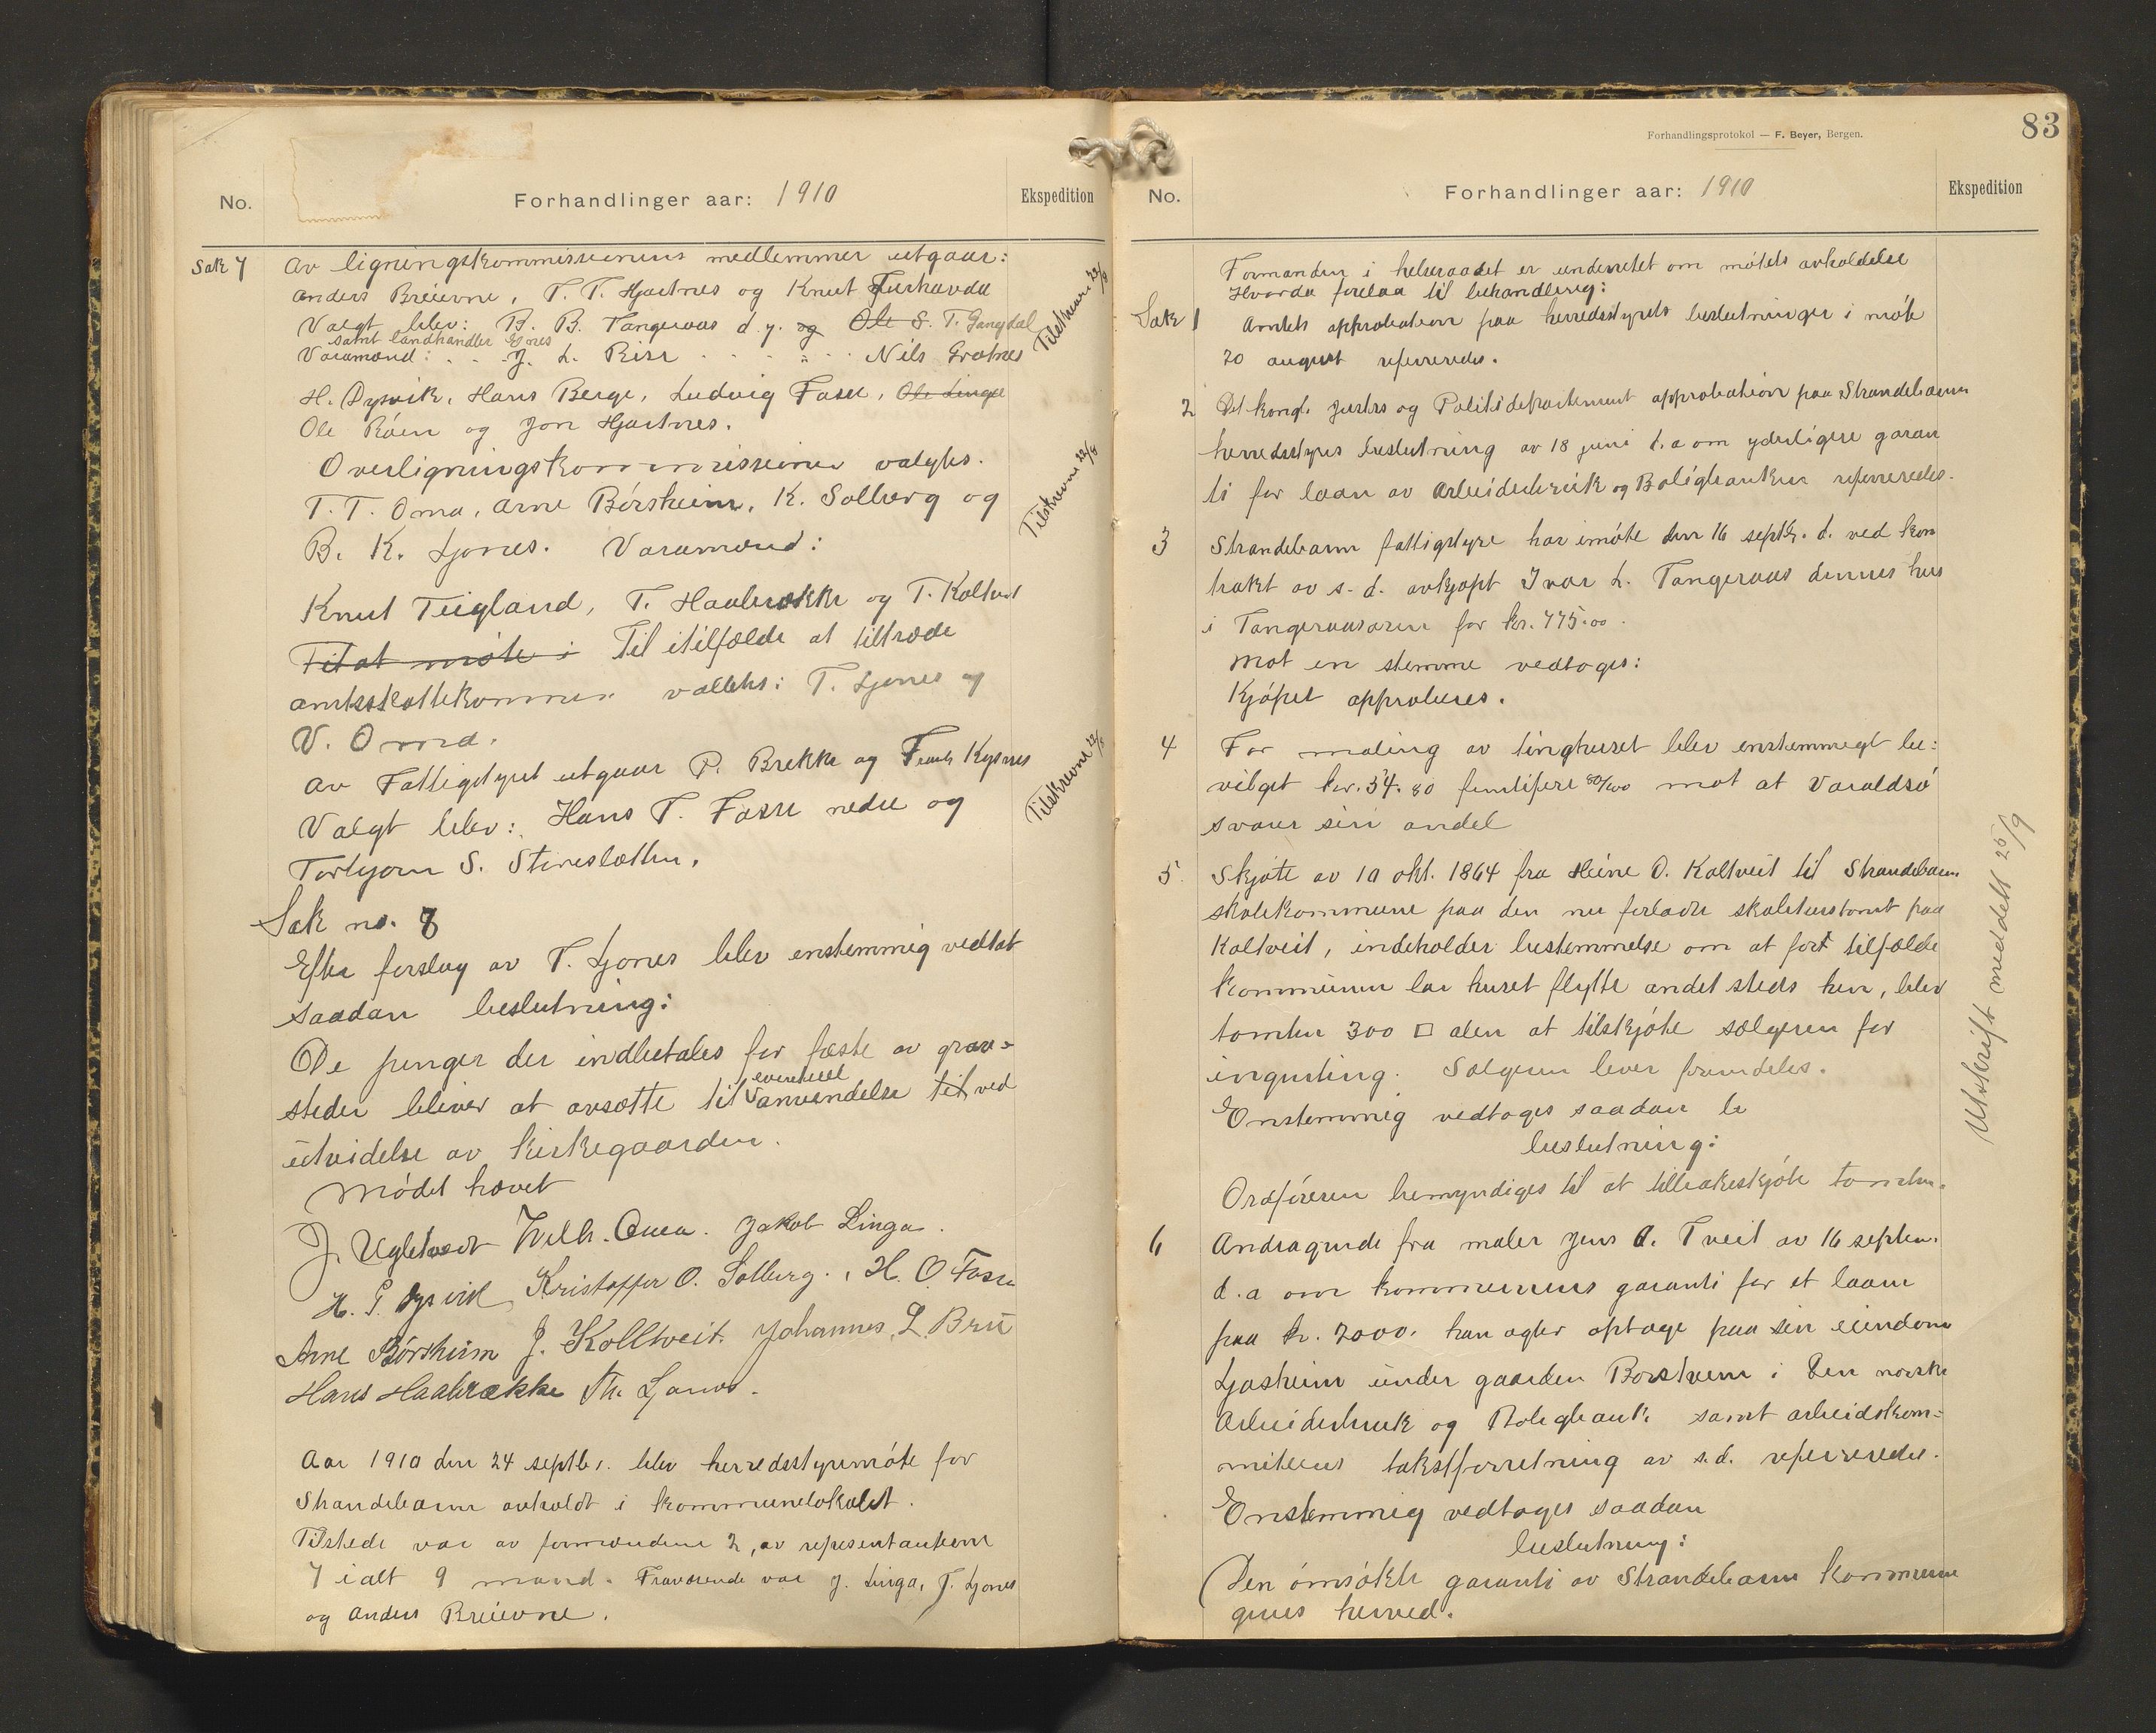 No.
Forhandlinger aar: 1910
Ekspedition
Sak 7
Av ligningskommissionens medlemmer utgaar:
Anders Breievne, T. T. Hjartnes og Knut Furhavde
Valgt blev: B. B. Tangeraas d.y. og Ole S. T. Gangdal
samt landhandler Ljones
Varamænd: . . J. L. Rise . . . . . . Nils Grotnes
H. Dysvik, Hans Berge, Ludvig Fosse, Ole Linge
Ole Røen og Jon Hjartnes.
Tilskreven 22/8
Overligningskommissionen valgtes.
T. T. Oma, Arne Børsheim, K. Solberg og
B. K. Ljones. Varamænd:
Knut Teigland, T. Haabrække og T. Koltveit
Tilskrevne 22/8
Til at møte i Til itilfælde at tiltræde
amtsskattekommisn valtes: T. Ljones og
V. Oma.
Av Fattigstyret utgaar P. Brekke og Kysnes
Valgt blev: Hans T. Fosse nedre og
Torbjørn S. Steinsletten.
Tilskrevne 22/8
Sak no. 8
Efter forslag av T. Ljones blev enstemmig vedtat
saadan beslutning:
De penger der indbetales for fæste av grav=
steder bliver at avsætte til eventuel anvendelse til ved
utvidelse av kirkegaarden.
Mødet hævet
J. Ugletvedt Wilh. Oma. Jakob Linga.
H. G. Dysvik, Kristoffer O. Solberg. H. O. Fosse
Arne Børsheim J. Kolltveit. Johannes L. Bru
Hans Haabrække Th. Ljones.
Aar 1910 den 24 septbr. blev herredsstyremøte for
Strandebarm avholdt i kommunelokalet.
Tilstede var av formændene 2, av representanterne
7 ialt 9 mand. Fraværende var J. Linga, T. Ljones
og Anders Breievne.
Forhandlingsprotokol — F. Beyer, Bergen.
83
No.
Forhandlinger aar: 1910
Ekspedition
Formanden i helseraadet er underrettet om møtets avholdelse
Hvorda forelaa til behandling:
Sak 1 Amtets approbation paa herredsstyrets beslutninger i møte
20 august refereredes.
2 Det kongl. Justis og Politidepartement approbation paa Strandebarm
herredsstyres beslutning av 18 juni d.a om yderligere garan
ti for laan av Arbeiderbruk og Boligbanken refereredes.
3 Strandebarm fattigstyre har i møte den 16 septbr. d. ved kon
trakt av s. d. avkjøpt Ivar L. Tangeraas dennes hus
i Tangeraasøren for kr. 775.00.
Mot en stemme vedtoges:
Kjøpet approberes.
4 For maling av tinghuset blev enstemmigt be:
vilget kr. 54.80 femtifire 80/100 mot at Varaldsø
svarer sin andel
5 Skjøte av 10 okt. 1864 fra Heine O. Koltveit til Strandebarm
skolekommune paa den nu forladte skolehustomt paa
Koltveit, indeholder bestemmelse om at fort tilfælde
kommunen lar huset flytte andet steds hen, blev
tomten 300 □ alen at tilskjøte sælgeren for
ingenting. Sælgeren lever fremdeles.
Enstemmig vedtoges saadan be
beslutning:
Ordføreren bemyndiges til at tilbakeskjøte tomten.
Utskrift meddelt 25/9
6 Andragende fra maler Jens A. Tveit av 16 septbr.
d. a om kommunens garanti for et laan
paa kr. 2000. han agter optage paa sin eiendom
Ljosheim under gaarden Børstveen i den norske
Arbeiderbruk og Boligbank samt arbeidskom=
miteens takstforretning av s. d. refereredes.
Enstemmig vedtoges saadan
beslutning:
Den ømsøkte garanti av Strandebarm Kommune
gives herved.